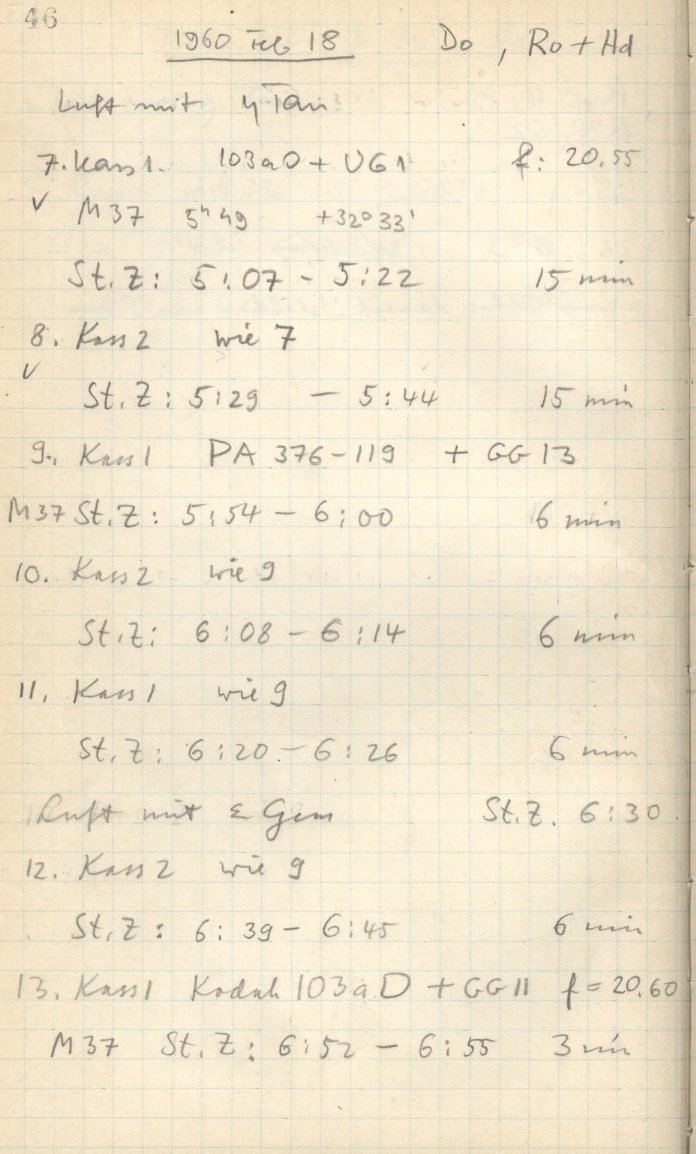 46
1960 Feb 18 Do, Ro + Hd
Luft mit η Tau
7. Kass 1. 103aO + UG1 f: 20.55
✓ M37 5ʰ49 +32°33'
St.Z: 5:07 - 5:22 15 min
8. Kass 2 wie 7
✓
St.Z: 5:29 - 5:44 15 min
9. Kass 1 PA 376-119 + GG 13
M37 St.Z: 5:54 - 6:00 6 min
10. Kass 2 wie 9
St.Z: 6:08 - 6:14 6 min
11. Kass 1 wie 9
St.Z: 6:20 - 6:26 6 min
Luft mit ε Gem St.Z. 6:30
12. Kass 2 wie 9
St.Z: 6:39 - 6:45 6 min
13. Kass 1 Kodak 103aD + GG11 f = 20.60
M37 St.Z: 6:52 - 6:55 3 min